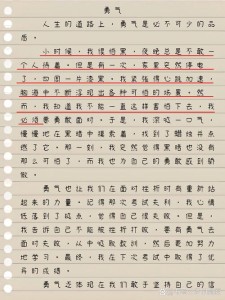 勇气
人生的道路上，勇气是必不可少的品
质。
小时候，我很怕黑，夜晚总是不敢一
个人待着。但是有一次，家里突然停电
了，四周一片漆黑。我紧张得心跳加速，
脑海中不断浮现出各种可怕的场景。然
而，我知道我不能一直这样害怕下去，我
必须要勇敢面对。于是，我深吸一口气，
慢慢地在黑暗中摸索着，找到了蜡烛并点
燃了它。那一刻，我突然觉得黑暗也没有
那么可怕了，而我也为自己的勇敢感到骄
傲。
勇气也让我们在面对挫折时有重新站
起来的力量。记得那次考试失利，我心情
低落到了极点，觉得自己很失败。但是，
我告诉自己不能被挫折打败，要有勇气去
面对失败，从中吸取教训，然后更加努力
地学习。最终，我在下次考试中取得了优
异的成绩。
勇气还体现在我们敢于坚持自己的信